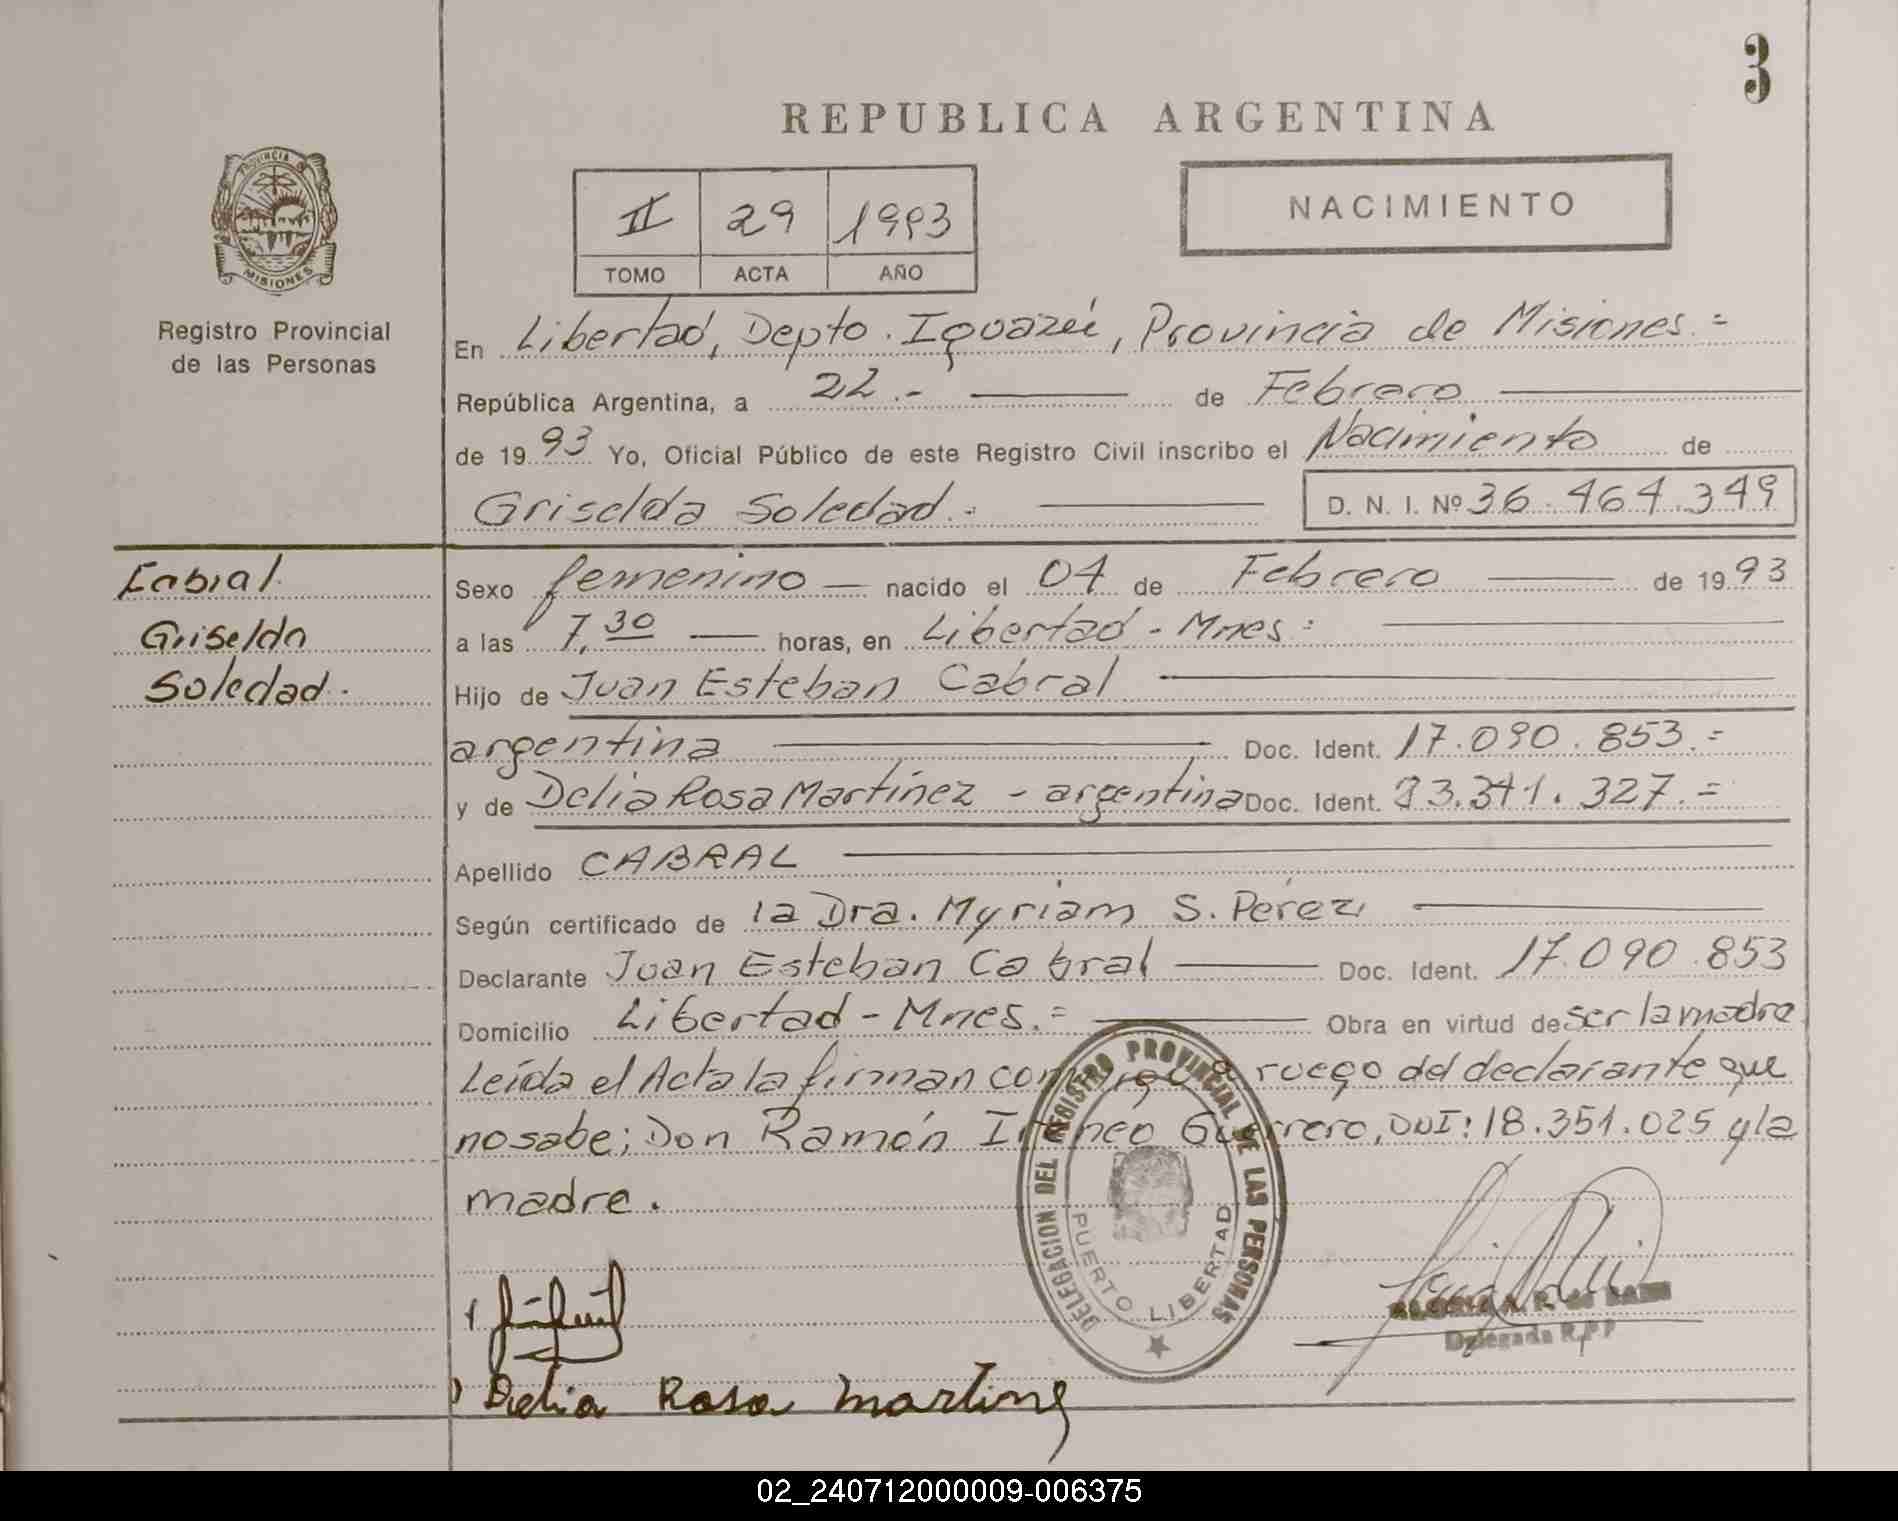 3
REPUBLICA ARGENTINA
PROVINCIA
MISIONES
Registro Provincial
de las Personas
II 29 1993
TOMO ACTA AÑO
NACIMIENTO
En Libertad, Depto. Iguazú, Provincia de Misiones.=
República Argentina, a 22.- de Febrero
de 1993 Yo, Oficial Público de este Registro Civil inscribo el Nacimiento de
Griselda Soledad.- D. N. I. Nº 36.464.349
Cabral
Griselda
Soledad.
Sexo femenino nacido el 04 de Febrero de 1993
a las 7,30 horas, en Libertad - Mnes:
Hijo de Juan Esteban Cabral
argentina Doc. Ident. 17.090.853.=
y de Delia Rosa Martínez - argentina Doc. Ident. 23.341.327.=
Apellido CABRAL
Según certificado de la Dra. Myriam S. Pérez
Declarante Juan Esteban Cabral Doc. Ident. 17.090.853
Domicilio Libertad - Mnes.= Obra en virtud de ser la madre
Leída el Acta la firman conmigo a ruego del declarante que
no sabe; Don Ramón Guerrero, DNI: 18.351.025 y la
madre.
DELEGACION DEL REGISTRO PROVINCIAL DE LAS PERSONAS
PUERTO LIBERTAD
Delegada R.P.P
Delia Rosa Martinez
02_240712000009-006375